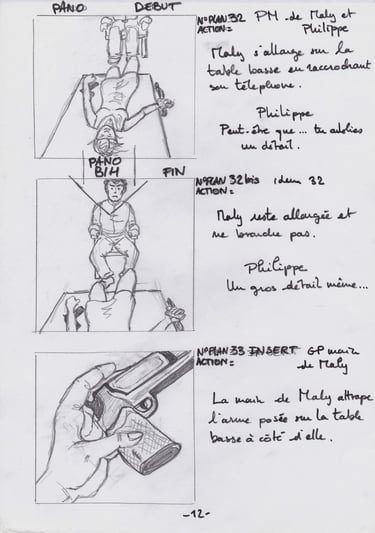 PANO DEBUT
N°PLAN 32 PM de Maly et Philippe
ACTION=
Maly s'allonge sur la
table basse en raccrochant
son téléphone.
Philippe
Peut-être que... tu oublies
un détail.
PANO
BIH FIN
N°PLAN 32 bis idem 32
ACTION=
Maly reste allongée et
ne bronche pas.
Philippe
Un gros détail même...
N°PLAN 33 INSERT GP main
de Maly
ACTION=
La main de Maly attrape
l'arme posée sur la table
basse à côté d'elle.
-12-